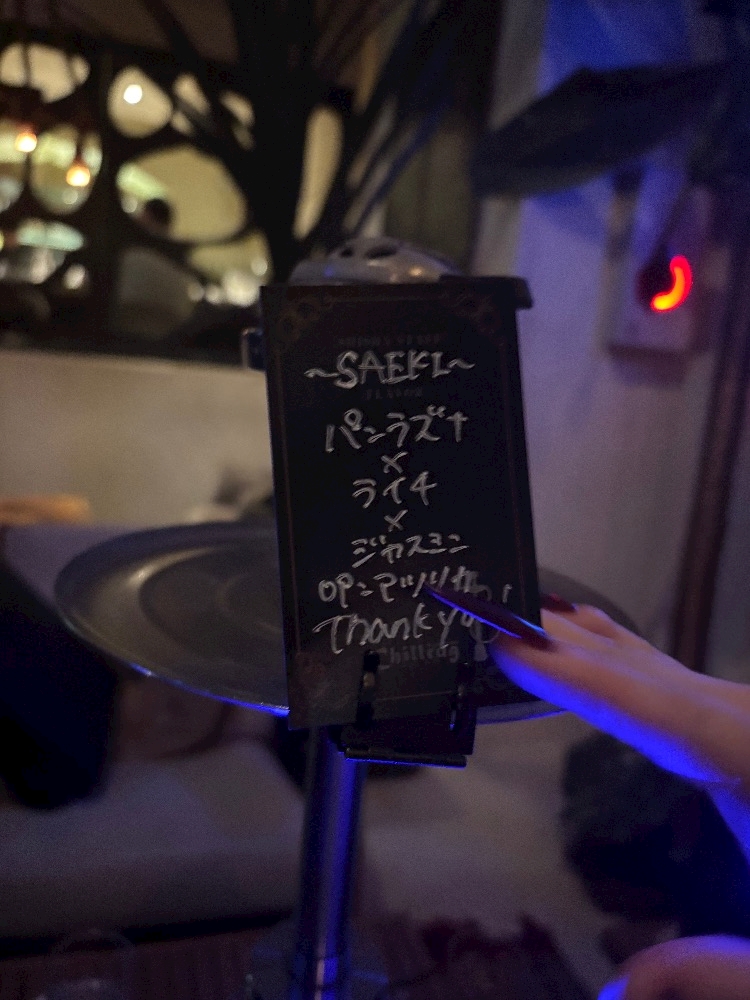 ~SAEKI~
パンラズナ
×
ライチ
×
ジャスミン
Thank you!
Chilling